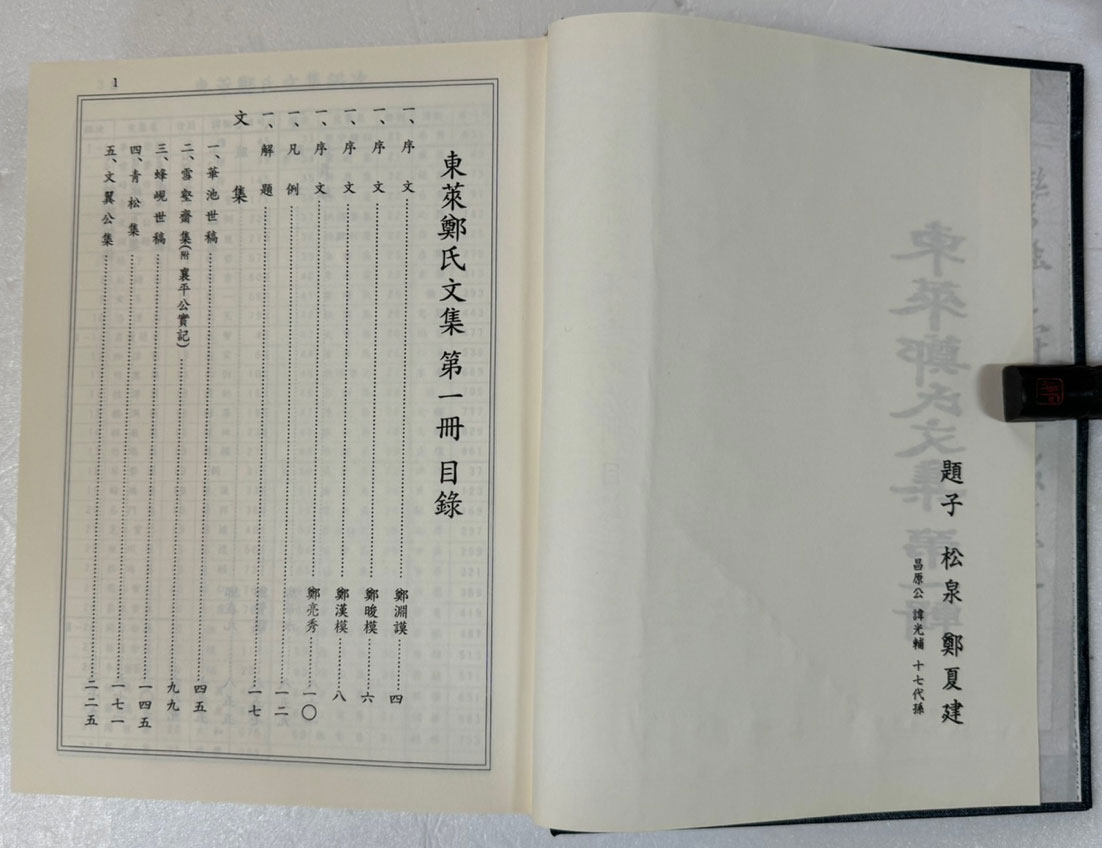 題子 松泉 鄭夏建
昌原公 諱光輔 十七代孫
1
東萊鄭氏文集 第一冊 目錄
一、序文……鄭淵謨……四
一、序文……鄭晙模……六
一、序文……鄭漢模……八
一、序文……鄭亮秀……一〇
一、凡例……一二
一、解題……一七
文集
一、華池世稿……四五
二、雪壑齋集(附 襄平公實記)……九九
三、蜂峴世稿……一四五
四、青松集……一七一
五、文翼公集……二二五